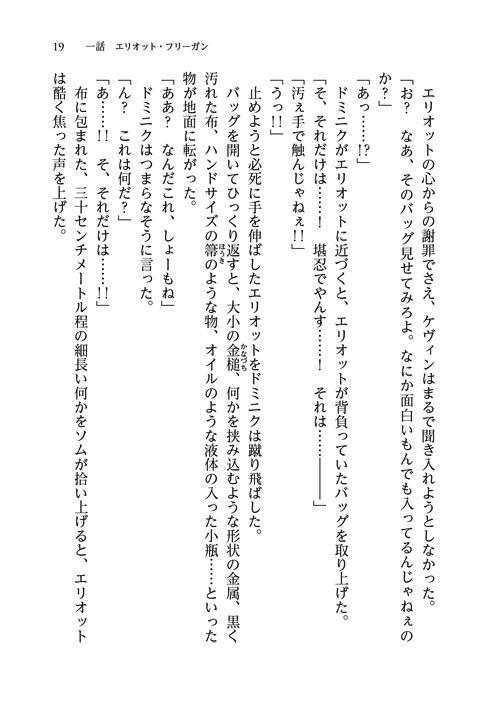 19　一話　エリオット・フリーガン
　エリオットの心からの謝罪でさえ、ケヴィンはまるで聞き入れようとしなかった。
「お？　なあ、そのバッグ見せてみろよ。なにか面白いもんでも入ってるんじゃねぇの
か？」
「あっ……!?」
　ドミニクがエリオットに近づくと、エリオットが背負っていたバッグを取り上げた。
「そ、それだけは……！　堪忍でやんす……！　それは……――」
「汚ぇ手で触んじゃねぇ!!」
「うっ!!」
　止めようと必死に手を伸ばしたエリオットをドミニクは蹴り飛ばした。
　バッグを開いてひっくり返すと、大小の金槌、何かを挟み込むような形状の金属、黒く
かなづち
汚れた布、ハンドサイズの箒のような物、オイルのような液体の入った小瓶……といった
ほうき
物が地面に転がった。
「ああ？　なんだこれ、しょーもね」
　ドミニクはつまらなそうに言った。
「ん？　これは何だ？」
「あ……!!　そ、それだけは……!!」
　布に包まれた、三十センチメートル程の細長い何かをソムが拾い上げると、エリオット
は酷く焦った声を上げた。